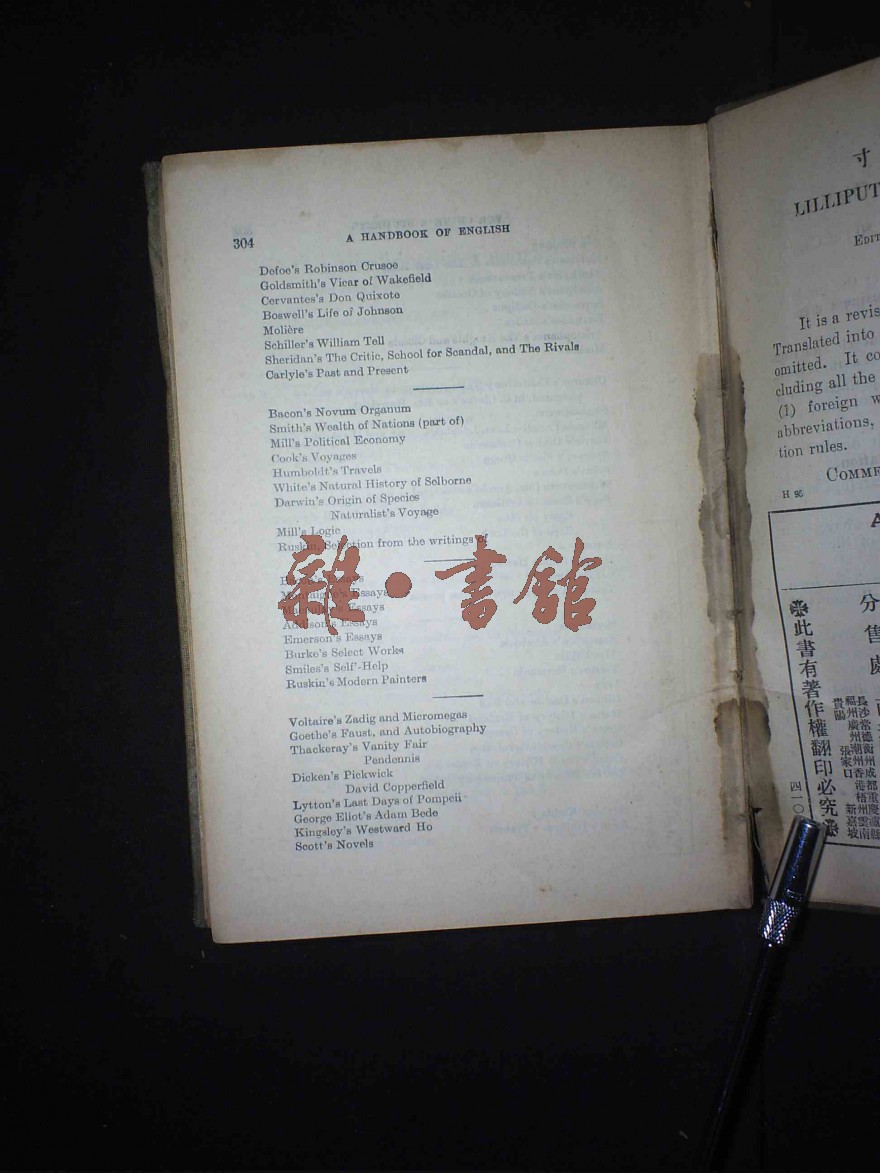 304
A HANDBOOK OF ENGLISH
Defoe's Robinson Crusoe
Goldsmith's Vicar of Wakefield
Cervantes's Don Quixote
Boswell's Life of Johnson
Molière
Schiller's William Tell
Sheridan's The Critic, School for Scandal, and The Rivals
Carlyle's Past and Present
Bacon's Novum Organum
Smith's Wealth of Nations (part of)
Mill's Political Economy
Cook's Voyages
Humboldt's Travels
White's Natural History of Selborne
Darwin's Origin of Species
Naturalist's Voyage
Mill's Logic
Ruskin, Selection from the writings of
Essays
Montaigne's Essays
Essays
Addison's Essays
Emerson's Essays
Burke's Select Works
Smiles's Self-Help
Ruskin's Modern Painters
Voltaire's Zadig and Micromegas
Goethe's Faust, and Autobiography
Thackeray's Vanity Fair
Pendennis
Dicken's Pickwick
David Copperfield
Lytton's Last Days of Pompeii
George Eliot's Adam Bede
Kingsley's Westward Ho
Scott's Novels
雜·書館
寸
LILLIPUT
EDIT
It is a revis
Translated into
omitted. It co
cluding all the
(1) foreign w
abbreviations,
tion rules.
H 95
COMME
A
分售處
此書有著作權翻印必究
四一〇